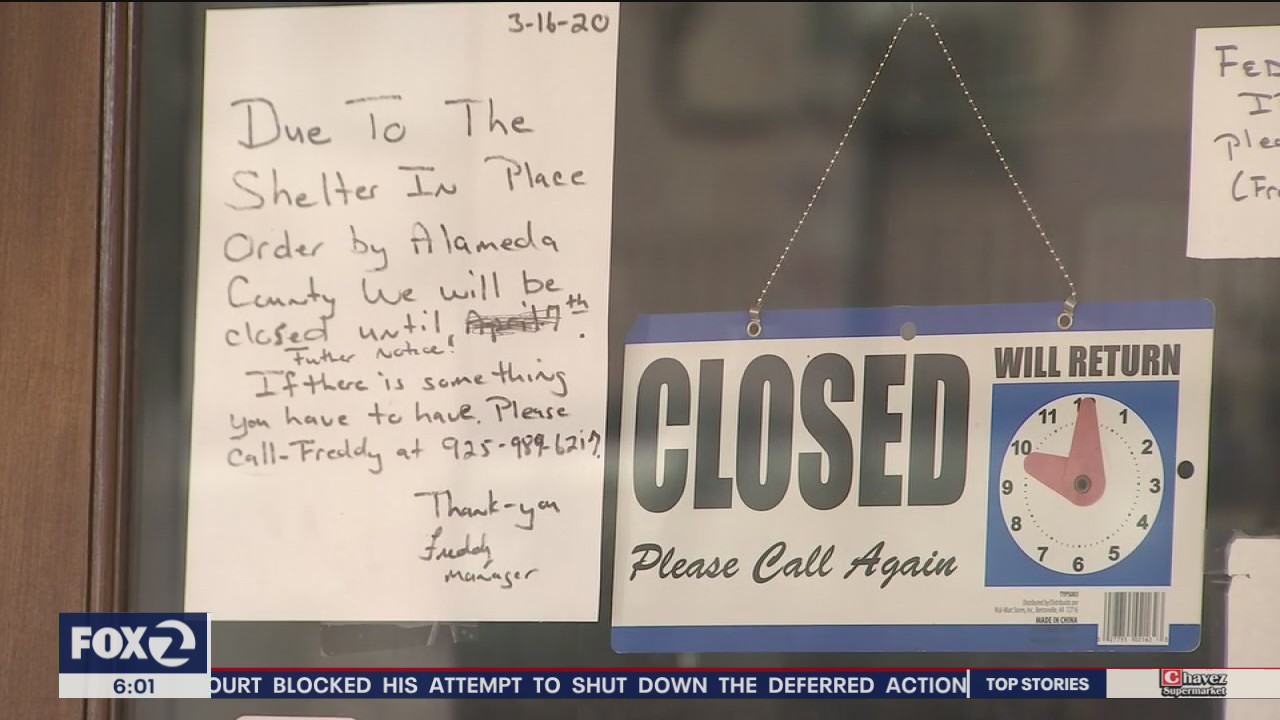 3-16-20
Due To The
Shelter In Place
Order by Alameda
County We will be
closed until April 7th.
Futher Notice!
If there is something
you have to have. Please
call-Freddy at 925-989-6217.
Thank-you
Freddy
Manager
CLOSED
Please Call Again
WILL RETURN
11 12 1
10 2
9 3
8 4
7 6 5
MADE IN CHINA
FED
I
Plea
(Fr
FOX 2
6:01
OURT BLOCKED HIS ATTEMPT TO SHUT DOWN THE DEFERRED ACTION
TOP STORIES
Chavez
Supermarket